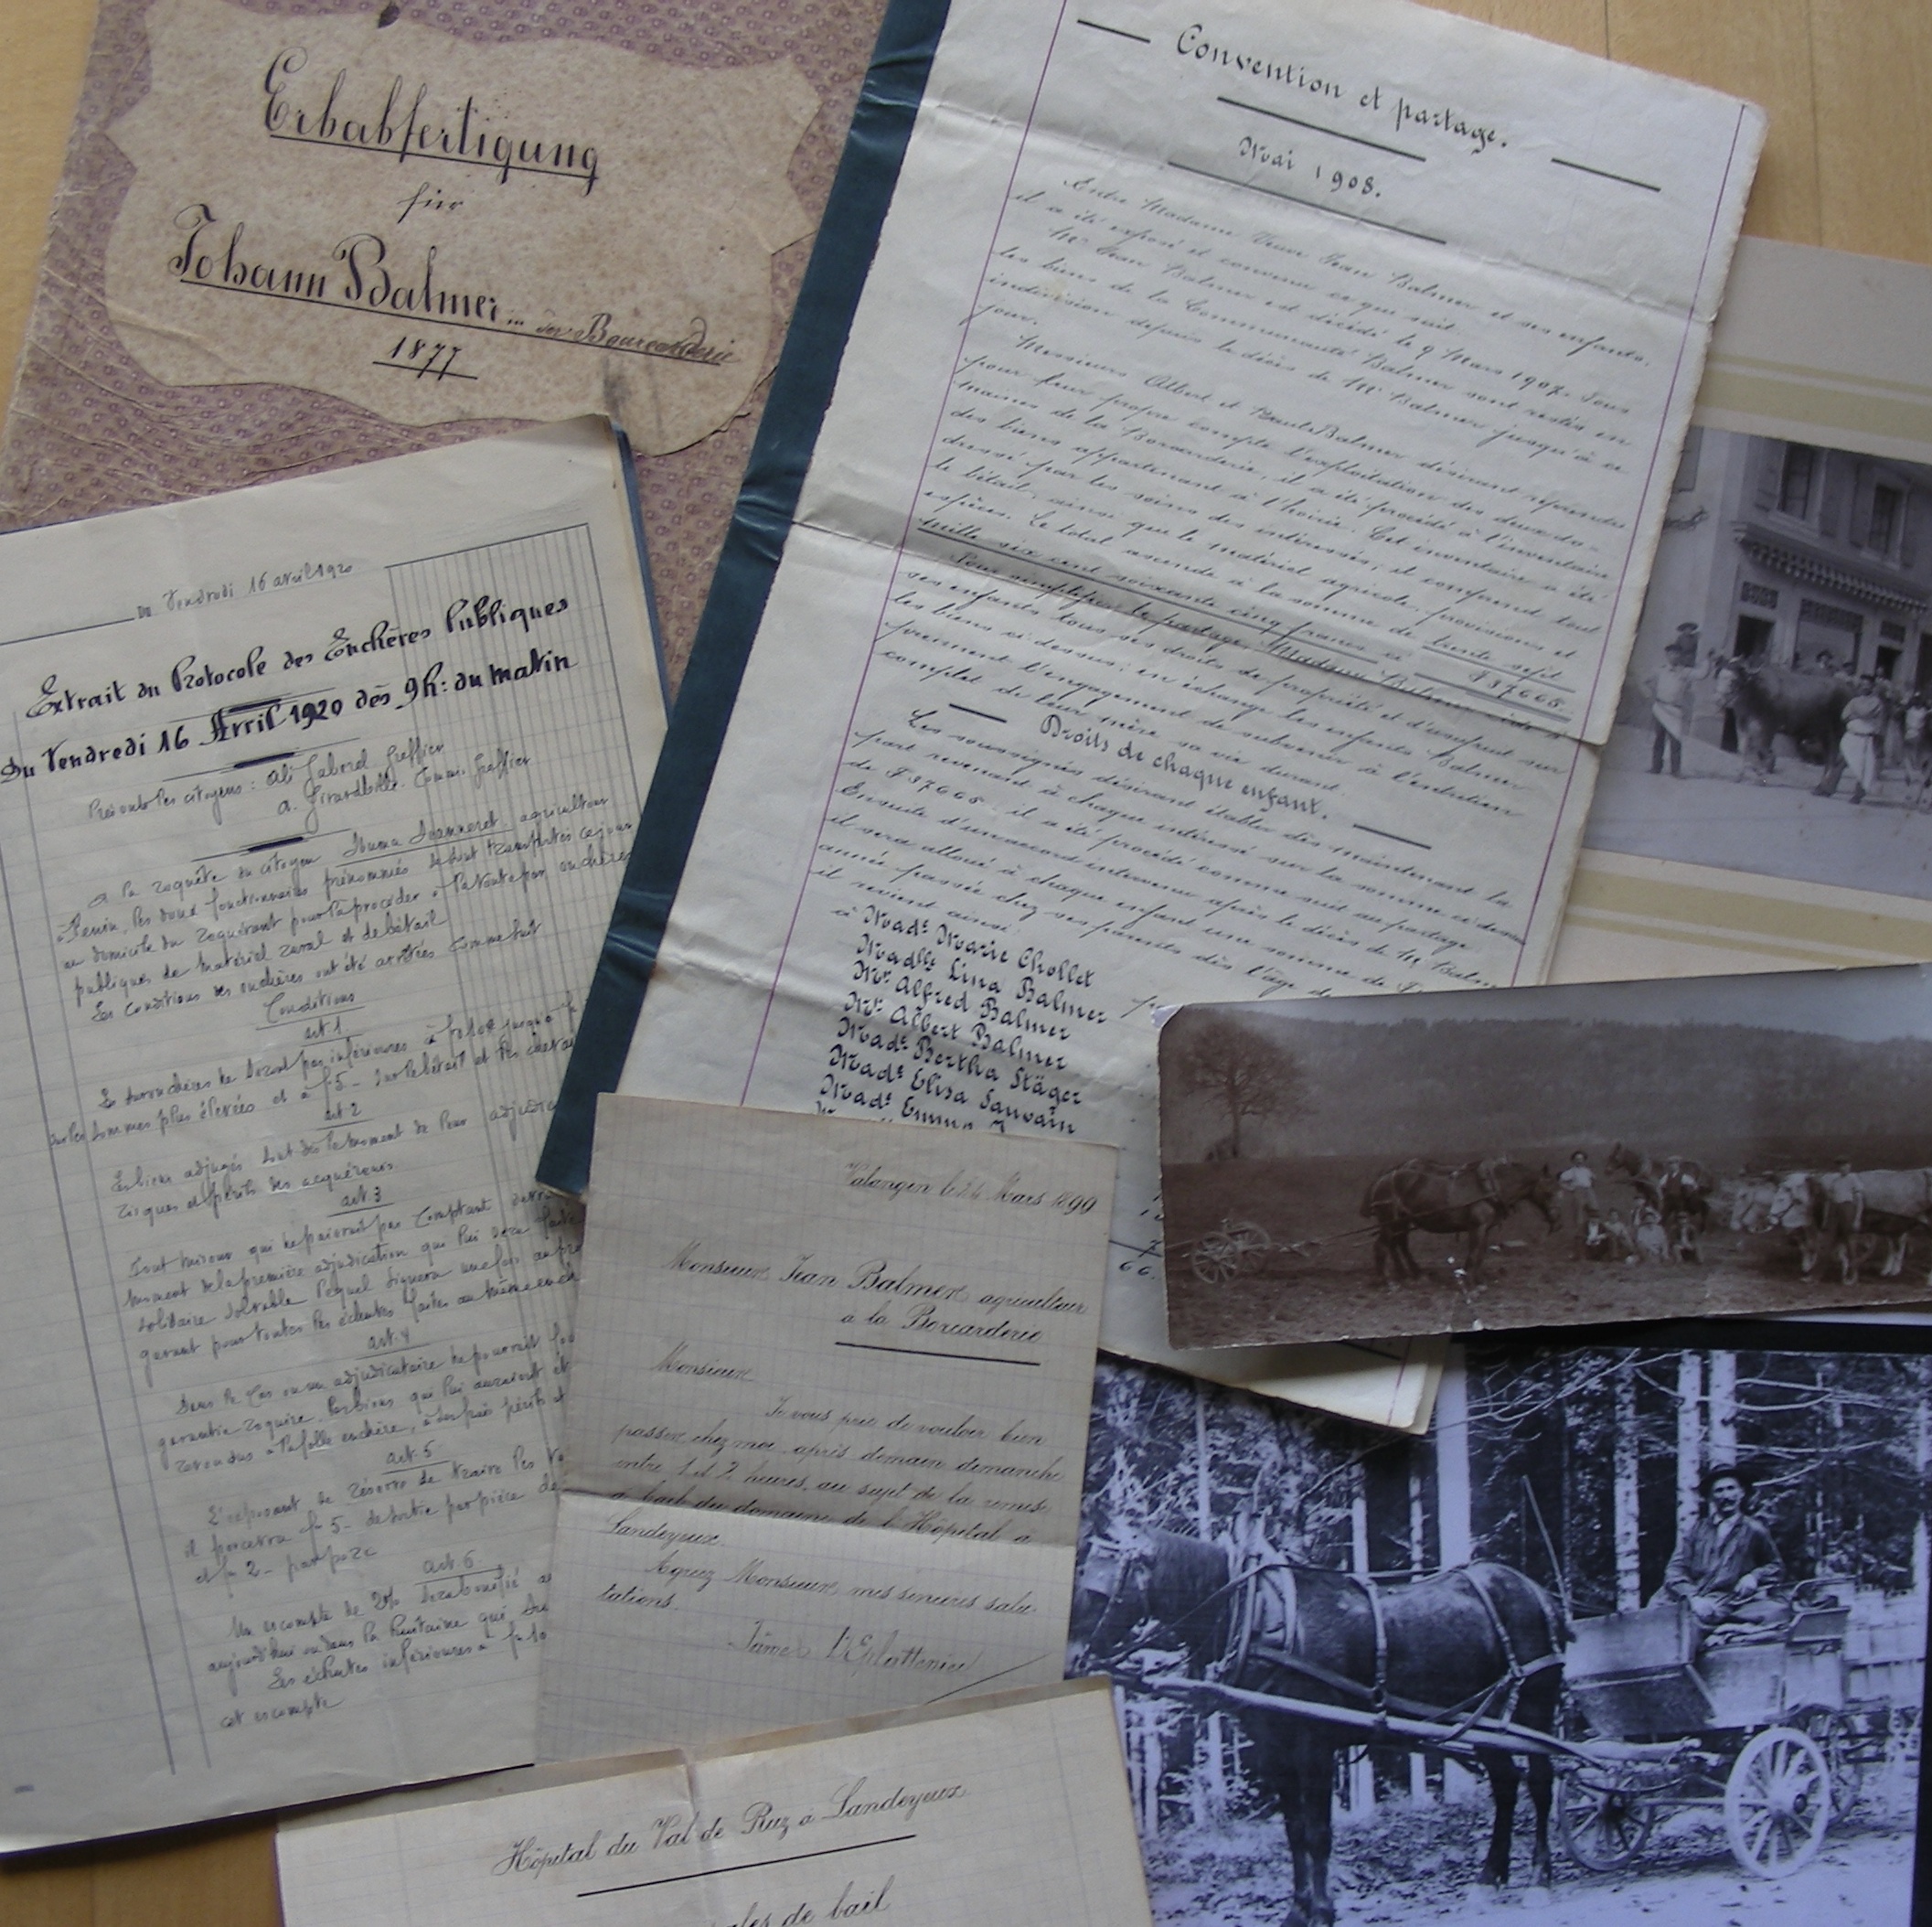 Erbabfertigung
für
Johann Balmer ... der Bourcarderie
1877
Convention et partage.
Mai 1908.
Entre Madame Veuve Jean Balmer et ses enfants,
il a été exposé et convenu ce qui suit.
Mr Jean Balmer est décédé le 9 Mars 1907. Tous
les biens de la Communauté Balmer sont restés en
indivision depuis le décès de Mr Balmer jusqu'à ce
jour.
Messieurs Albert et Balmer désirant reprendre
pour leur propre compte l'exploitation des deux do-
maines de la Borcarderie, il a été procédé à l'inventaire
des biens appartenant à l'hoirie. Cet inventaire a été
dressé par les soins des intéressés; il comprend tout
le bétail, ainsi que le matériel agricole, provisions et
espèces. Le total ascende à la somme de trente sept
mille six cent soixante cinq francs ci F 37665.
Pour simplifier le partage, Madame Balmer cède à
ses enfants tous ses droits de propriété et d'usufruit sur
les biens ci dessus; en échange les enfants Balmer
prennent l'engagement de subvenir à l'entretien
complet de leur mère sa vie durant.
Droits de chaque enfant.
Les soussignés désirant établir dès maintenant la
part revenant à chaque intéressé sur la somme ci dessus
de F 37665. il a été procédé comme suit au partage
Ensuite d'un accord intervenu après le décès de Mr Balmer
il sera alloué à chaque enfant une somme de F
année passée chez ses parents dès l'âge de
il revient ainsi:
à Made Marie Chollet
Madlle Lina Balmer
Mr Alfred Balmer
Mr Albert Balmer
Made Bertha Stäger
Made Elisa Sauvain
Made Emma
Du Vendredi 16 avril 1920
Extrait du Protocole des Enchères Publiques
Du Vendredi 16 Avril 1920 dès 9h: du matin
Présents les citoyens: Ali Gaberel Greffier
A. Commis Greffier
A la requête du citoyen Numa Jeanneret, agriculteur
les deux fonctionnaires prénommés se sont transportés ce jour
au domicile du requérant pour là procéder à la vente par enchères
publiques de matériel rural et de bétail
Les conditions des enchères ont été arrêtées comme suit
Conditions
art. 1
Les surenchères ne seront pas inférieures à jusqu'à
sur les sommes plus élevées et à f 5.- sur le bétail et les
art. 2
Les biens adjugés sont dès le moment de leur adjudic
risques et périls des acquéreurs
art. 3
Tout miseur qui ne paierait pas comptant devra
moment de la première adjudication qui lui sera faite
solidaire solvable lequel signera une fois
garant pour toutes les échutes faites au même
art. 4
Dans le cas où un adjudicataire ne pourrait
garantie requise, les biens qui lui auraient ét
revendus à la folle enchère, à ses frais périls et
art. 5
L'exposant se réserve de traire les va
il percevra f 5.- de par pièce de
et f 2.- par
art. 6
Un escompte de 2% sera bonifié
aujourd'hui ou dans la huitaine qui
Les échutes inférieures à f 10
cet escompte
Valangin le 24 Mars 1899
Monsieur Jean Balmer agriculteur
à la Borcarderie
Monsieur
Je vous prie de vouloir bien
passer chez moi après demain dimanche
entre 1 et 2 heures, au sujet de la remise
à bail du domaine de l'Hôpital à
Landeyeux.
Agréez Monsieur, mes sincères salu-
tations.
James L'Eplattenier
66.
Hôpital du Val de Ruz à Landeyeux
de bail